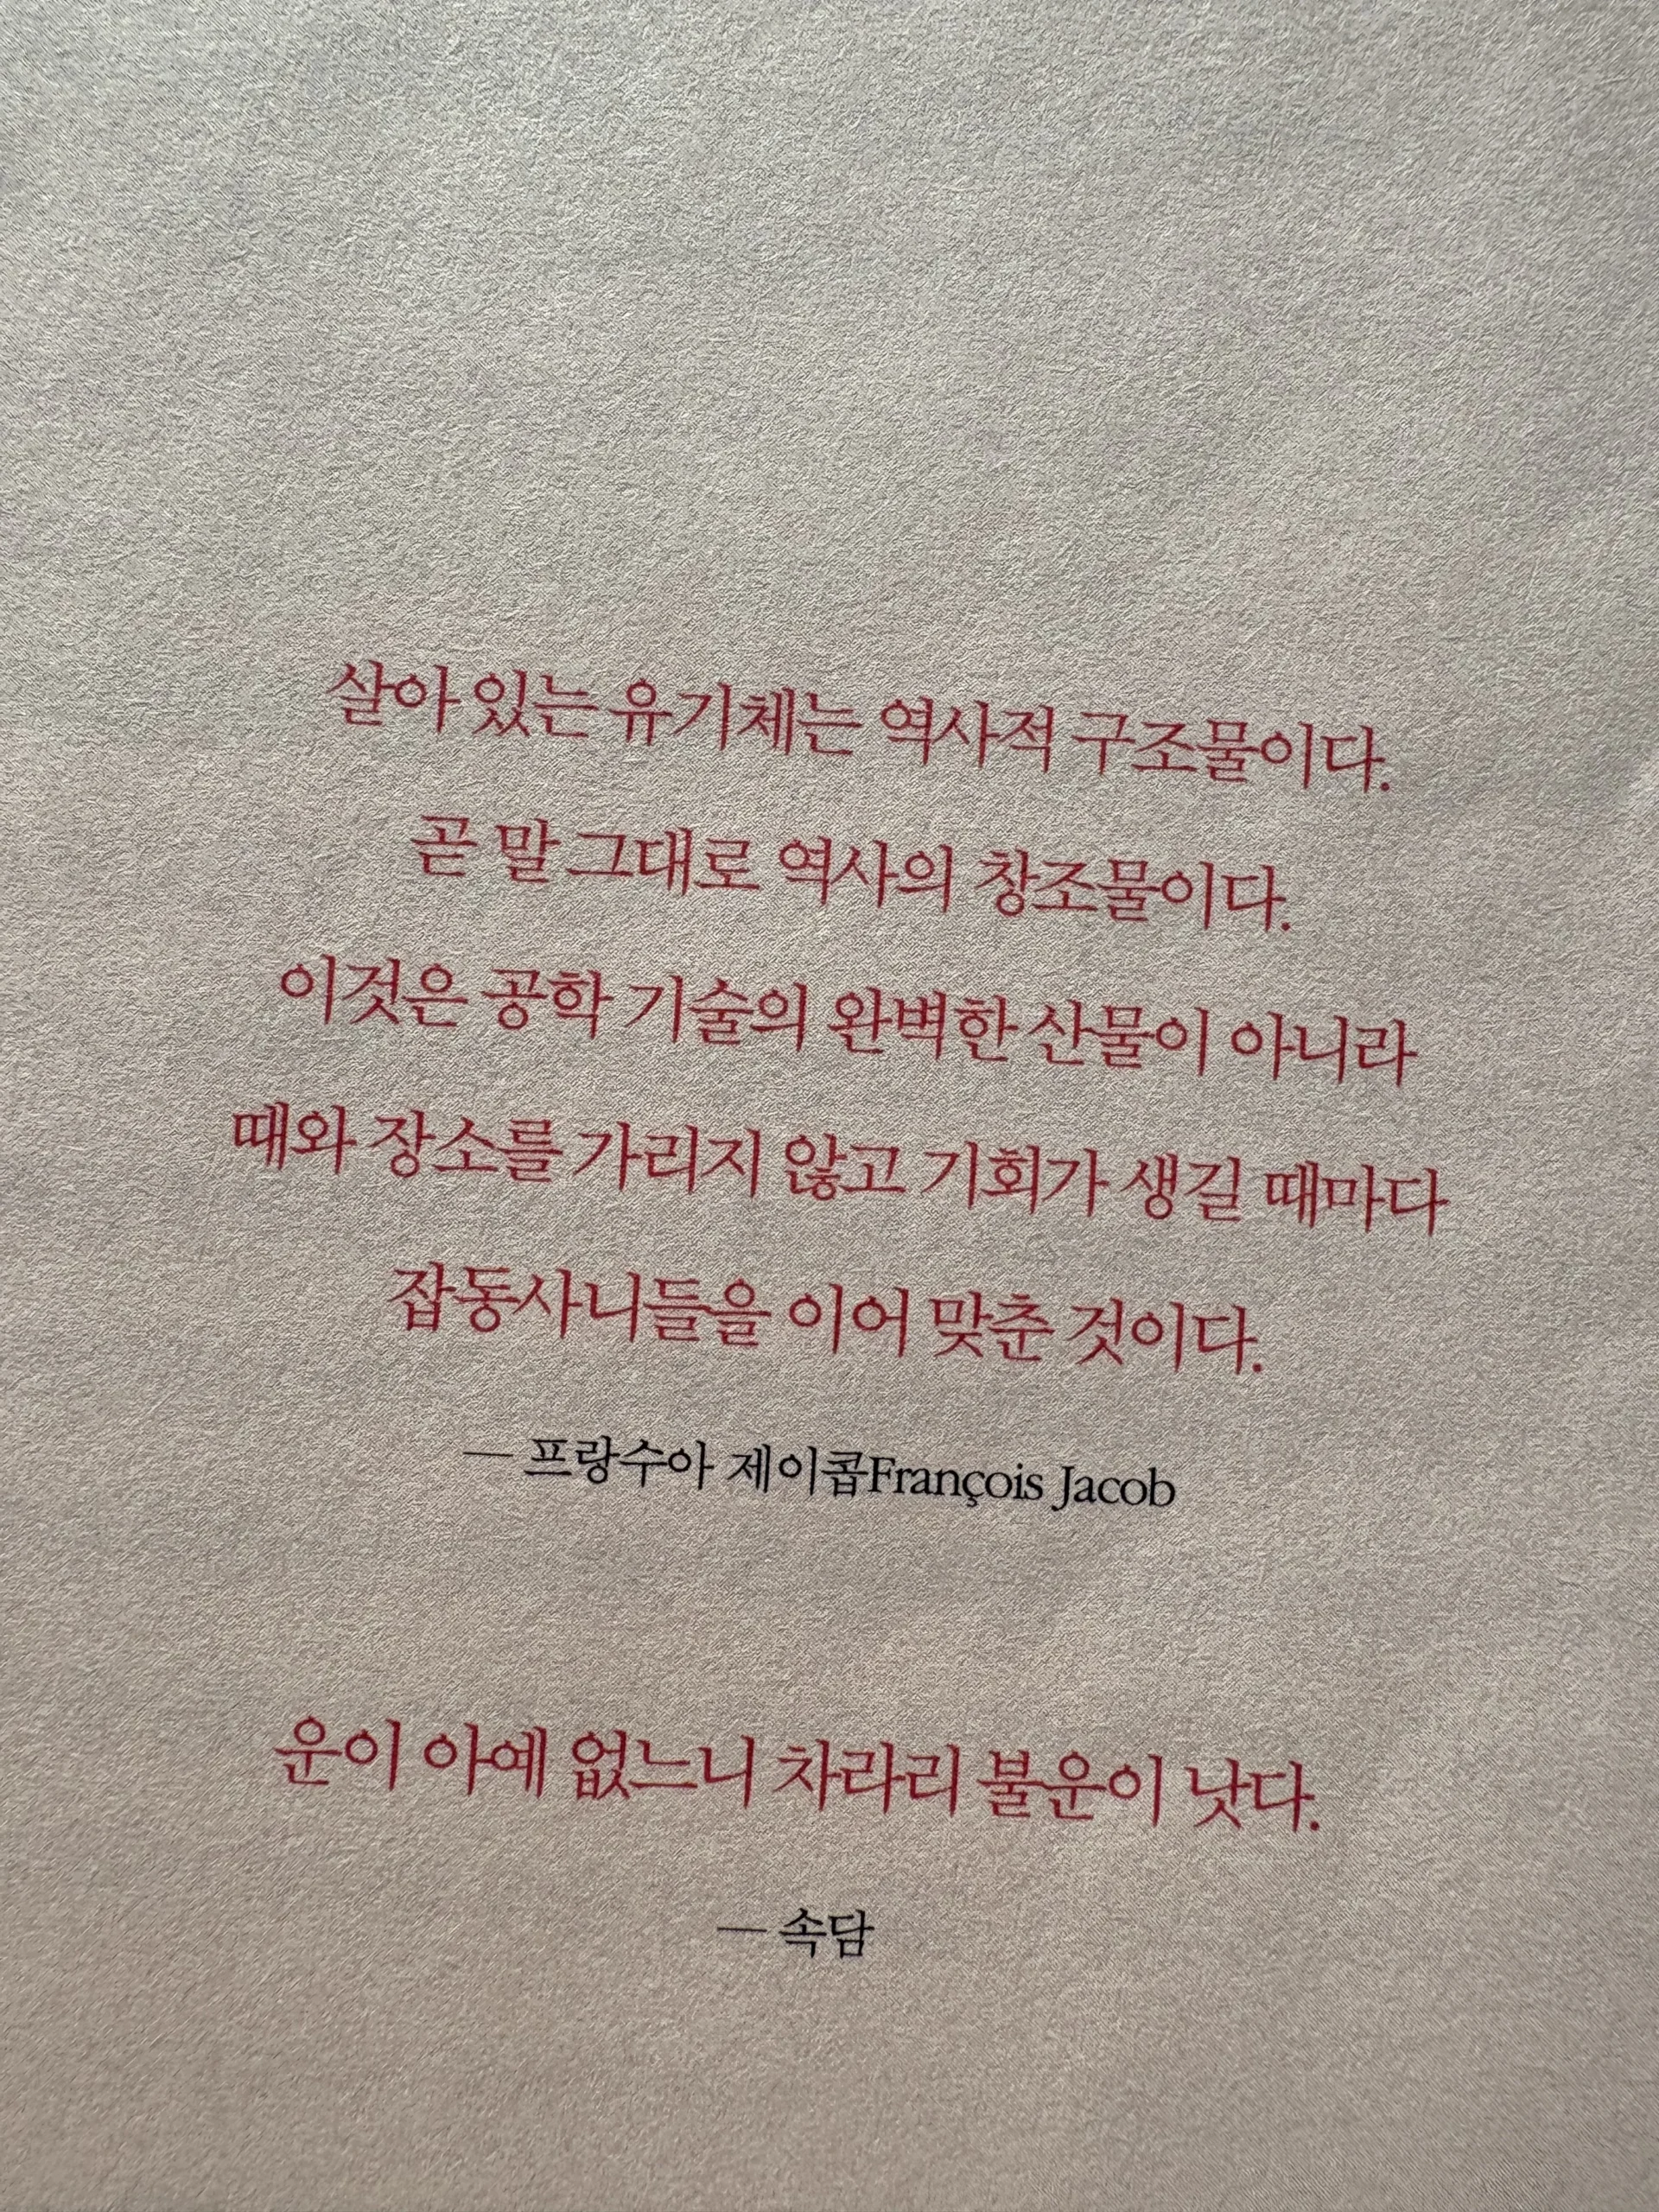 살아 있는 유기체는 역사적 구조물이다.
곧 말 그대로 역사의 창조물이다.
이것은 공학 기술의 완벽한 산물이 아니라
때와 장소를 가리지 않고 기회가 생길 때마다
잡동사니들을 이어 맞춘 것이다.
— 프랑수아 제이콥François Jacob
운이 아예 없느니 차라리 불운이 낫다.
— 속담